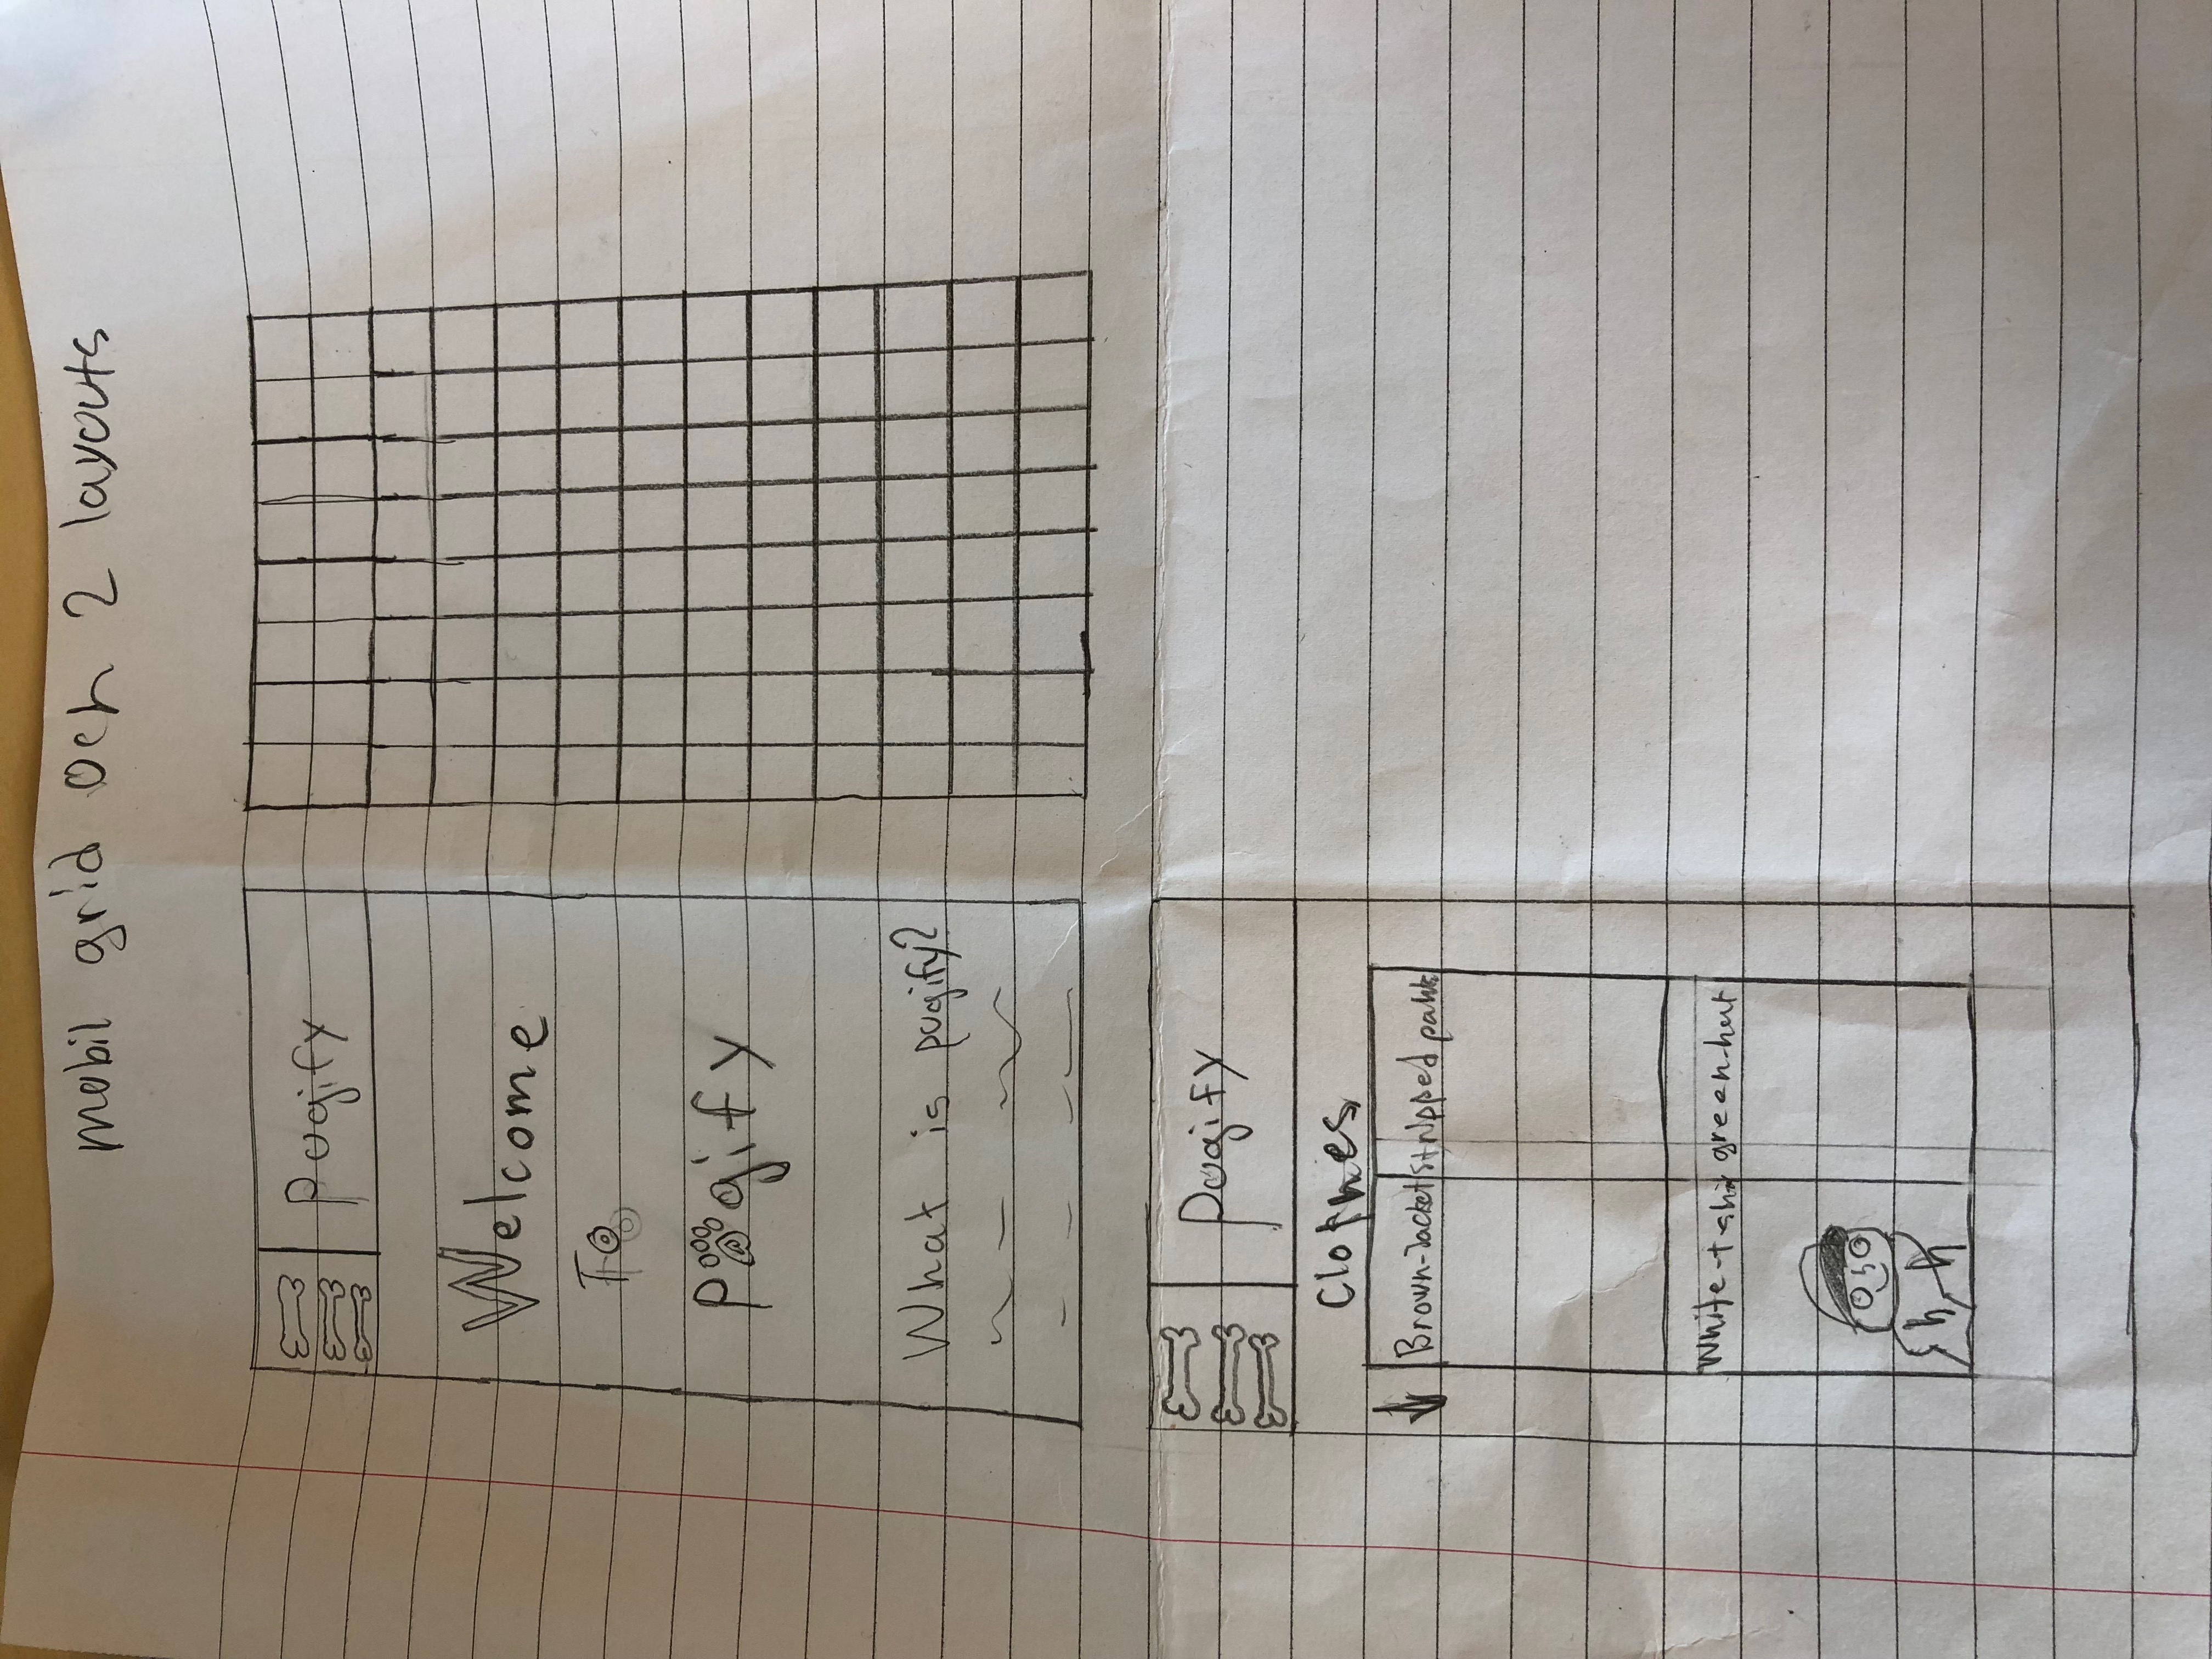 mobil grid och 2 layouts
Pugify
Welcome
To
Pugify
What is pugify?
Pugify
Clothes
Brown-Jacket
Stripped pants
White-t-shi
green-hat